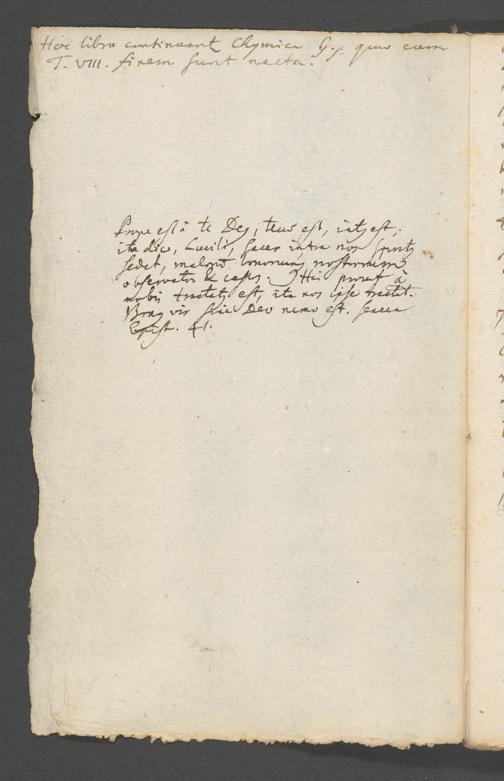 Hoc libro continuant Chymica G. g. quæ cum
T. VIII. finem sunt nacta.
Prope est à te Deg, tecu est, int est,
ita dico, Lucili, sacer intra nos spirit
sedet, malorū bonorumq nostrorum
observator & custos. Hic prout à
nobis tractat est, ita nos ipse tractat.
Bong vir sine Deo nemo est. Seneca
Epist. 41.